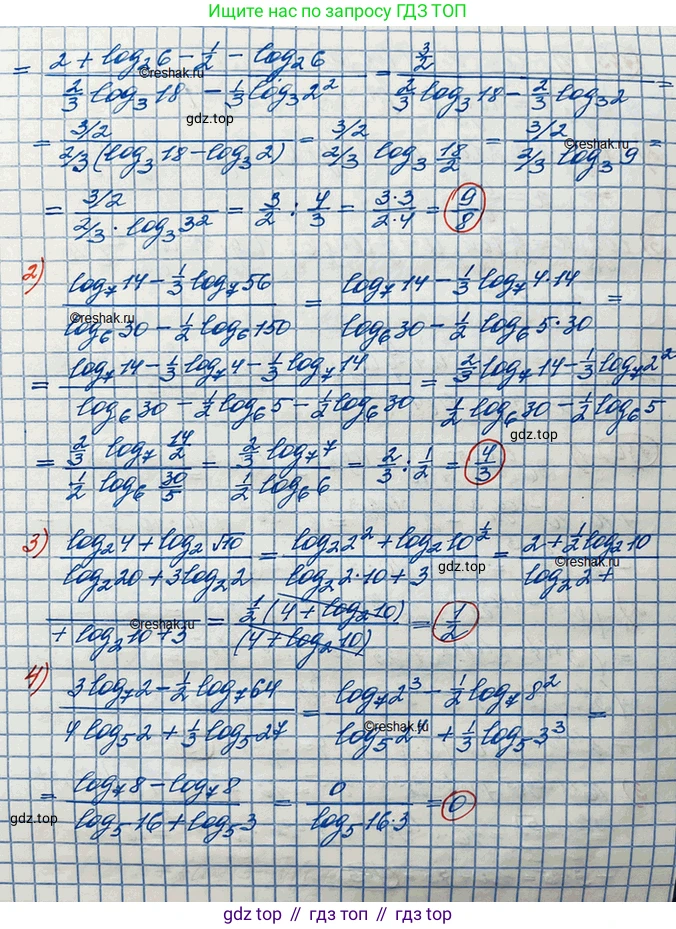 Ищите нас по запросу ГДЗ ТОП
= (2 + log₂6 − 1/2 − log₂6) / (2/3 log₃18 − 1/3 log₃2²) = (3/2) / (2/3 log₃18 − 2/3 log₃2) =
©reshak.ru
gdz.top
= (3/2) / (2/3 (log₃18 − log₃2)) = (3/2) / (2/3 log₃ 18/2) = (3/2) / (2/3 log₃9) =
= (3/2) / (2/3 · log₃3²) = 3/2 : 4/3 = (3·3)/(2·4) = 9/8
2) (log₇14 − 1/3 log₇56) / (log₆30 − 1/2 log₆150) = (log₇14 − 1/3 log₇4·14) / (log₆30 − 1/2 log₆5·30) =
©reshak.ru
= (log₇14 − 1/3 log₇4 − 1/3 log₇14) / (log₆30 − 1/2 log₆5 − 1/2 log₆30) = (2/3 log₇14 − 1/3 log₇2²) / (1/2 log₆30 − 1/2 log₆5)
gdz.top
= (2/3 log₇ 14/2) / (1/2 log₆ 30/5) = (2/3 log₇7) / (1/2 log₆6) = 2/3 : 1/2 = 4/3
3) (log₂4 + log₂√10) / (log₂20 + 3log₂2) = (log₂2² + log₂10^(1/2)) / (log₂2·10 + 3) = (2 + 1/2 log₂10) / (log₂2 +
gdz.top
+ log₂10 + 3) = (1/2 (4 + log₂10)) / (4 + log₂10) = 1/2
©reshak.ru
4) (3log₇2 − 1/2 log₇64) / (4log₅2 + 1/3 log₅27) = (log₇2³ − 1/2 log₇8²) / (log₅2⁴ + 1/3 log₅3³) =
©reshak.ru
= (log₇8 − log₇8) / (log₅16 + log₅3) = 0 / (log₅16·3) = 0
gdz.top
gdz.top
gdz top // гдз топ // gdz.top